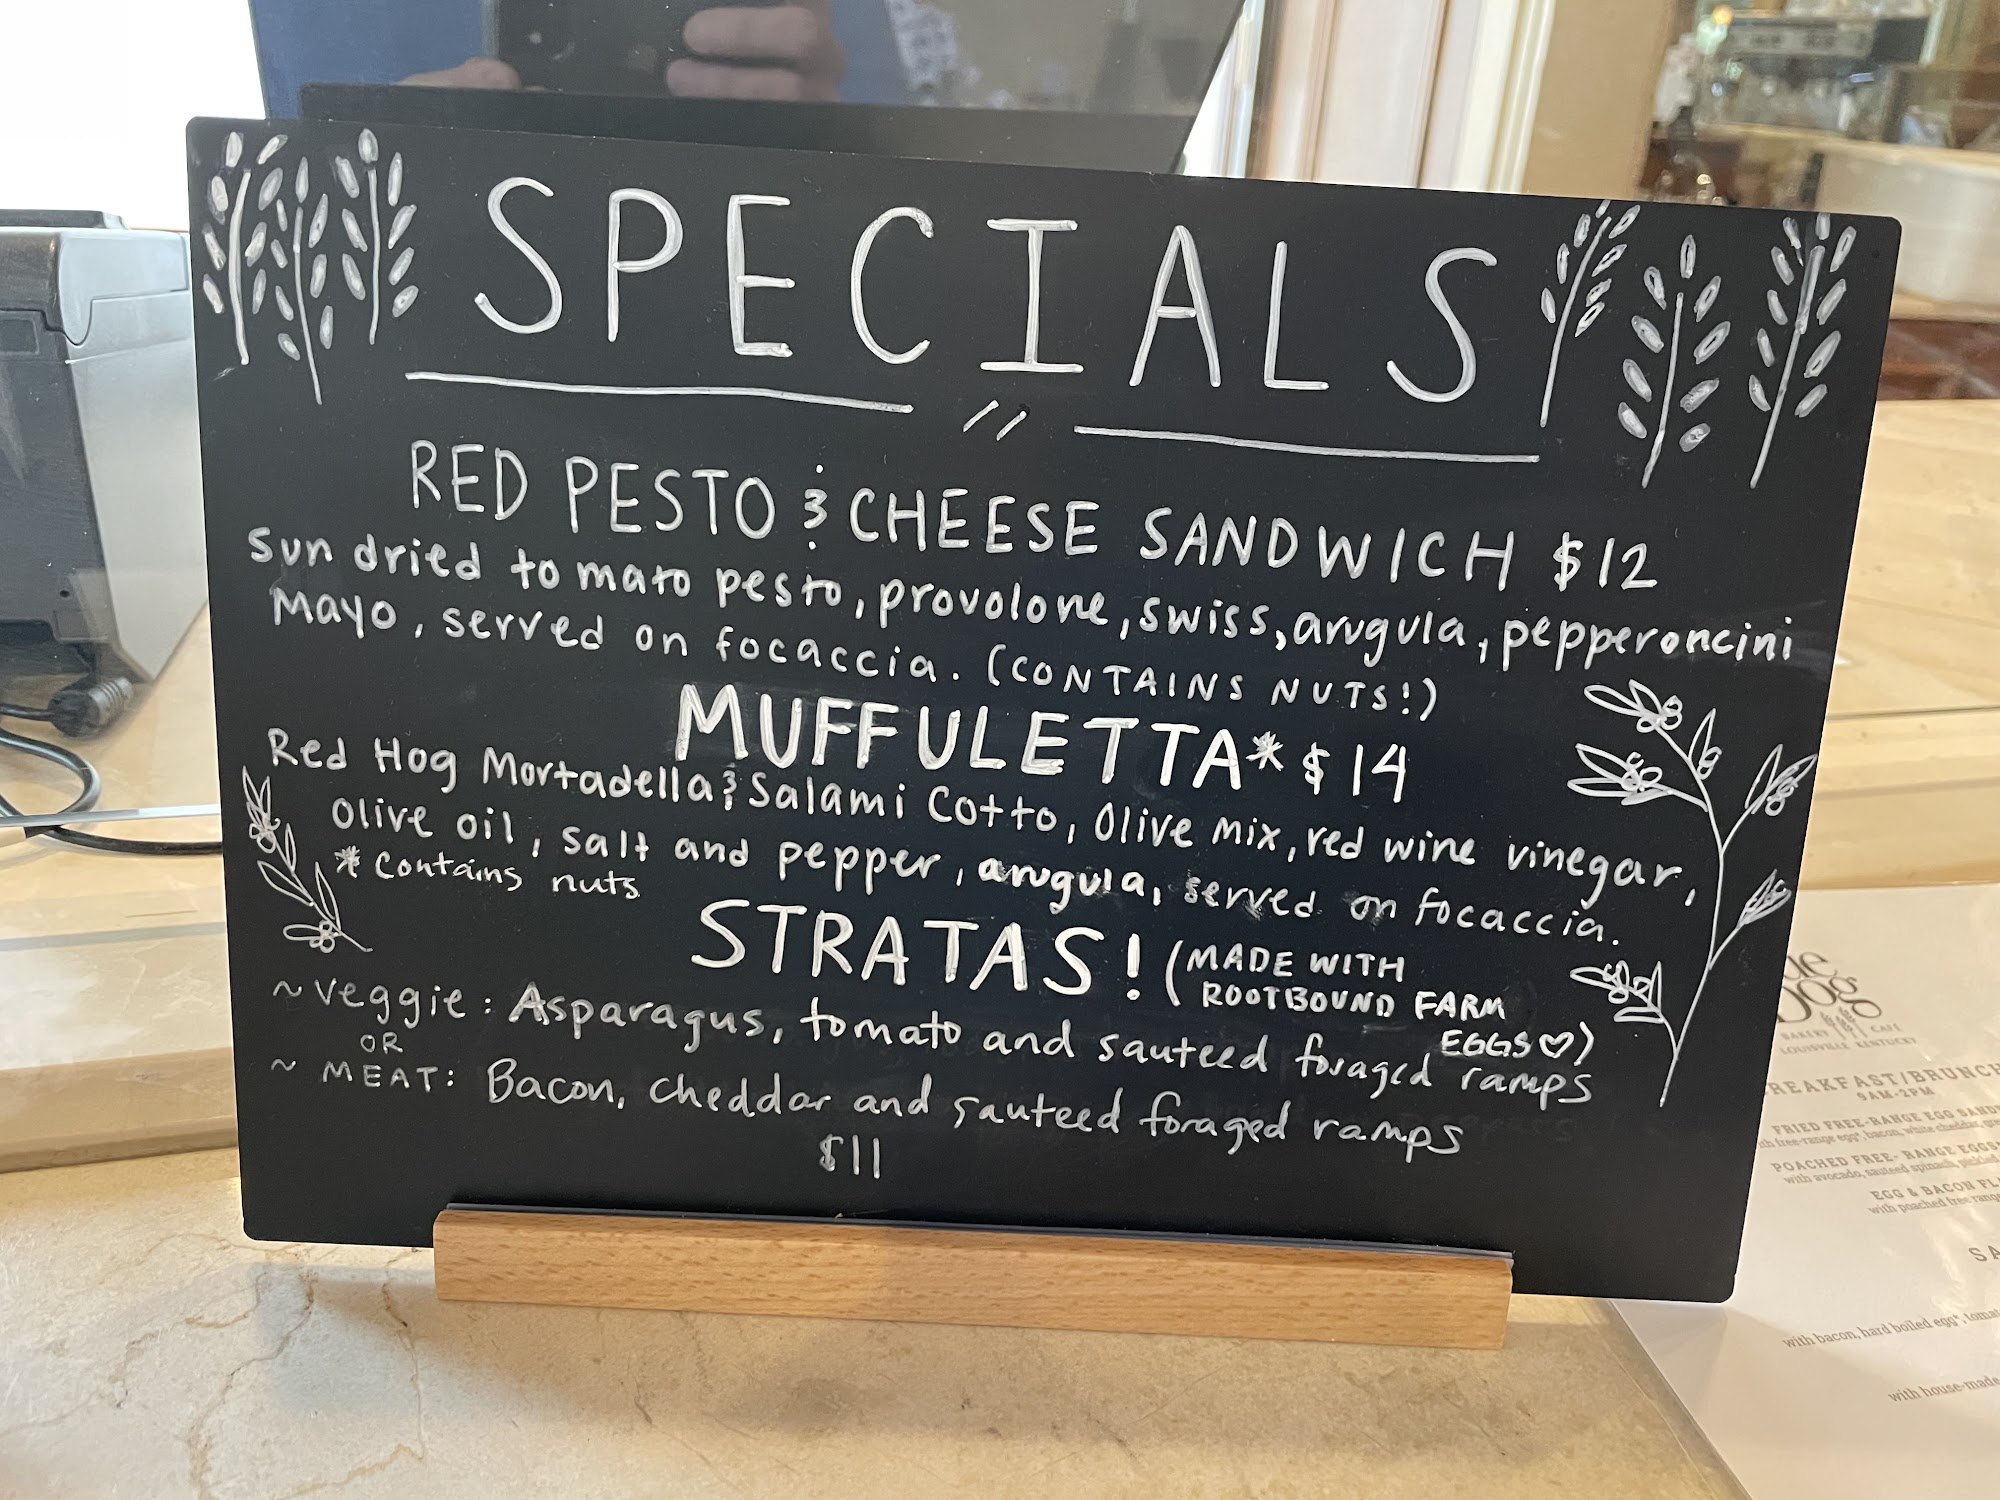 SPECIALS
RED PESTO & CHEESE SANDWICH $12
Sun dried tomato pesto, provolone, swiss, arugula, pepperoncini
Mayo, served on focaccia. (CONTAINS NUTS!)
MUFFULETTA* $14
Red Hog Mortadella & Salami Cotto, Olive mix, red wine vinegar,
Olive oil, salt and pepper, arugula, served on focaccia.
* Contains nuts
STRATAS! (MADE WITH
ROOTBOUND FARM
EGGS♡)
~ veggie: Asparagus, tomato and sauteed foraged ramps
OR
~ MEAT: Bacon, cheddar and sauteed foraged ramps
$11
Dog
BAKERY CAFE
LOUISVILLE KENTUCKY
BREAKFAST/BRUNCH
9AM-2PM
FRIED FREE-RANGE EGG
with free-range egg*, bacon, white cheddar,
POACHED FREE-RANGE EGGS
with avocado, sauteed spinach, pickled
EGG & BACON
with poached free range
with bacon, hard boiled egg*,
with house-made